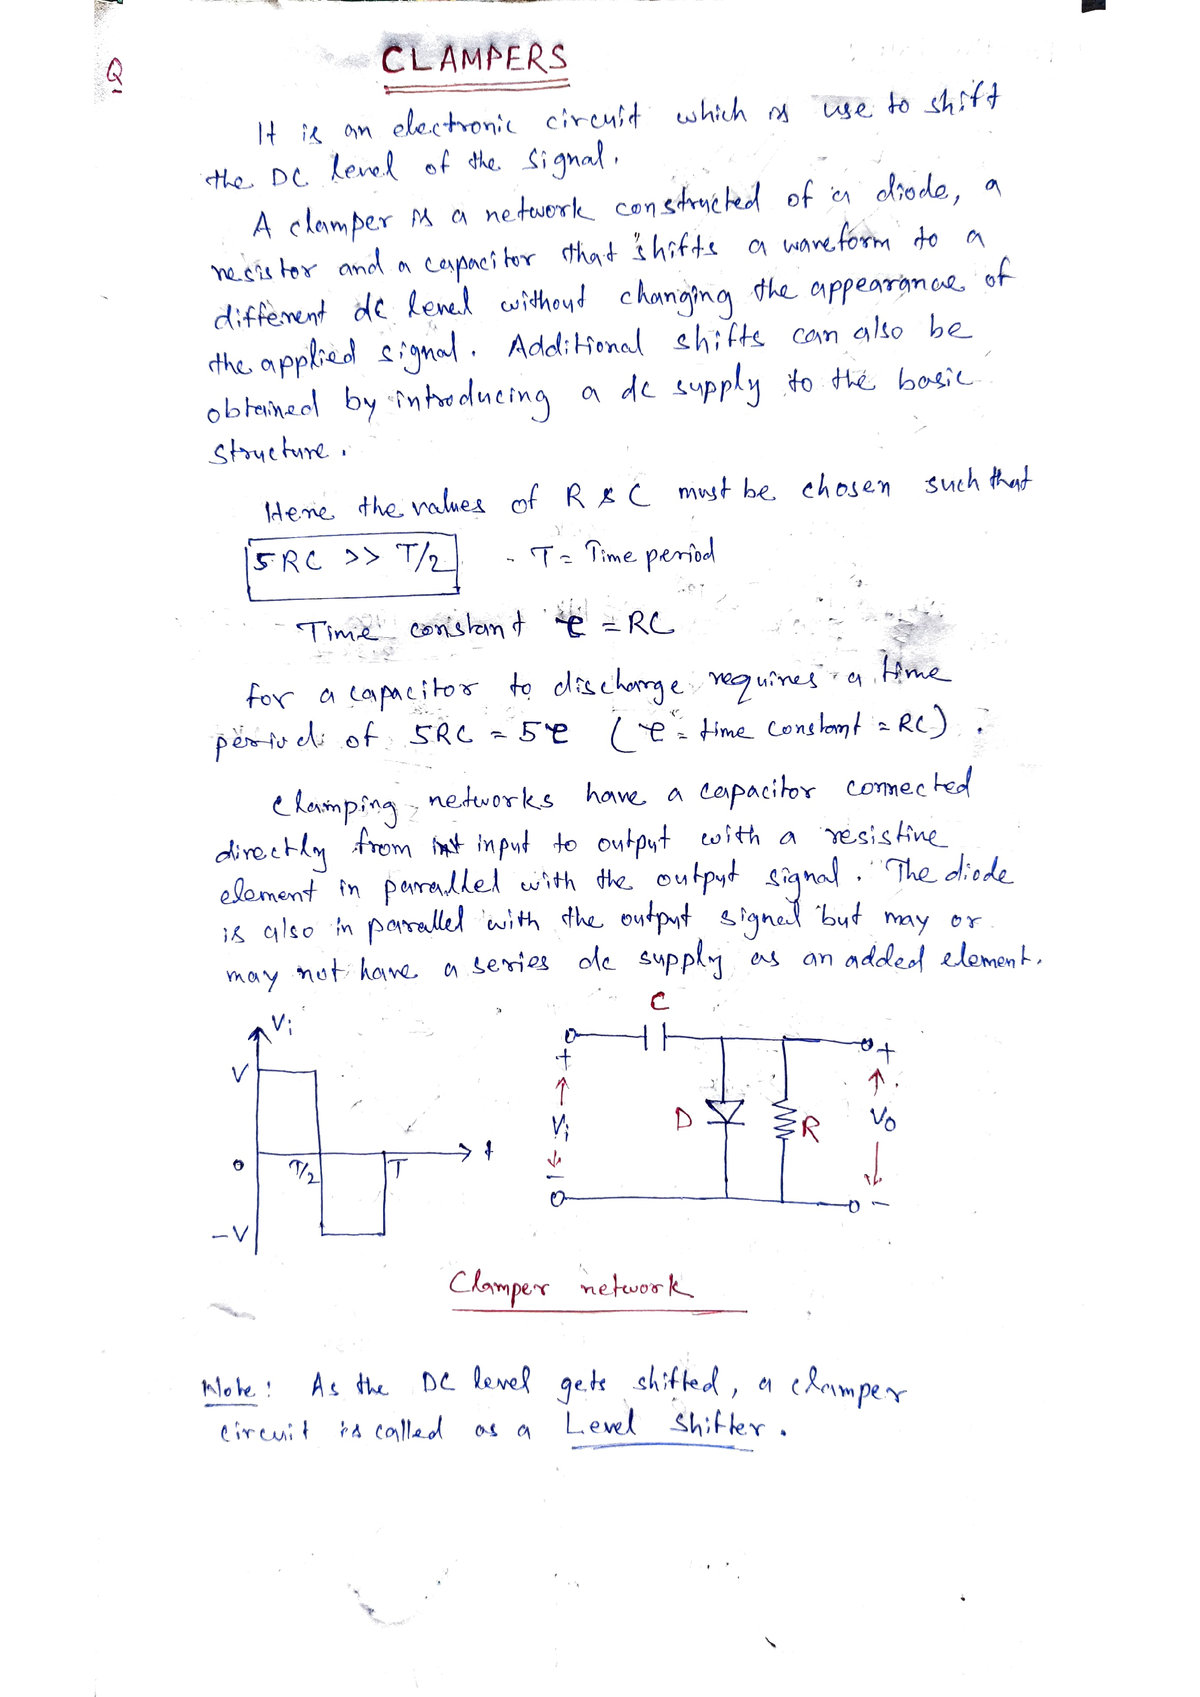 Q
CLAMPERS
It is an electronic circuit which is use to shift
the DC level of the signal.
A clamper is a network constructed of a diode, a
resistor and a capacitor that "shifts a waveform to a
different dc level without changing the appearance of
the applied signal. Additional shifts can also be
obtained by introducing a dc supply to the basic
structure.
Here the values of R & C must be chosen such that
5RC >> T/2 - T = Time period
Time constant τ = RC
for a capacitor to discharge requires a time
period of 5RC = 5τ (τ = time constant = RC).
Clamping networks have a capacitor connected
directly from input to output with a resistive
element in parallel with the output signal. The diode
is also in parallel with the output signal but may or
may not have a series dc supply as an added element.
Vi
V
0
-V
T/2
T
t
C
+
Vi
-
D
R
+
Vo
-
Clamper network
Note: As the DC level gets shifted, a clamper
circuit is called as a Level Shifter.